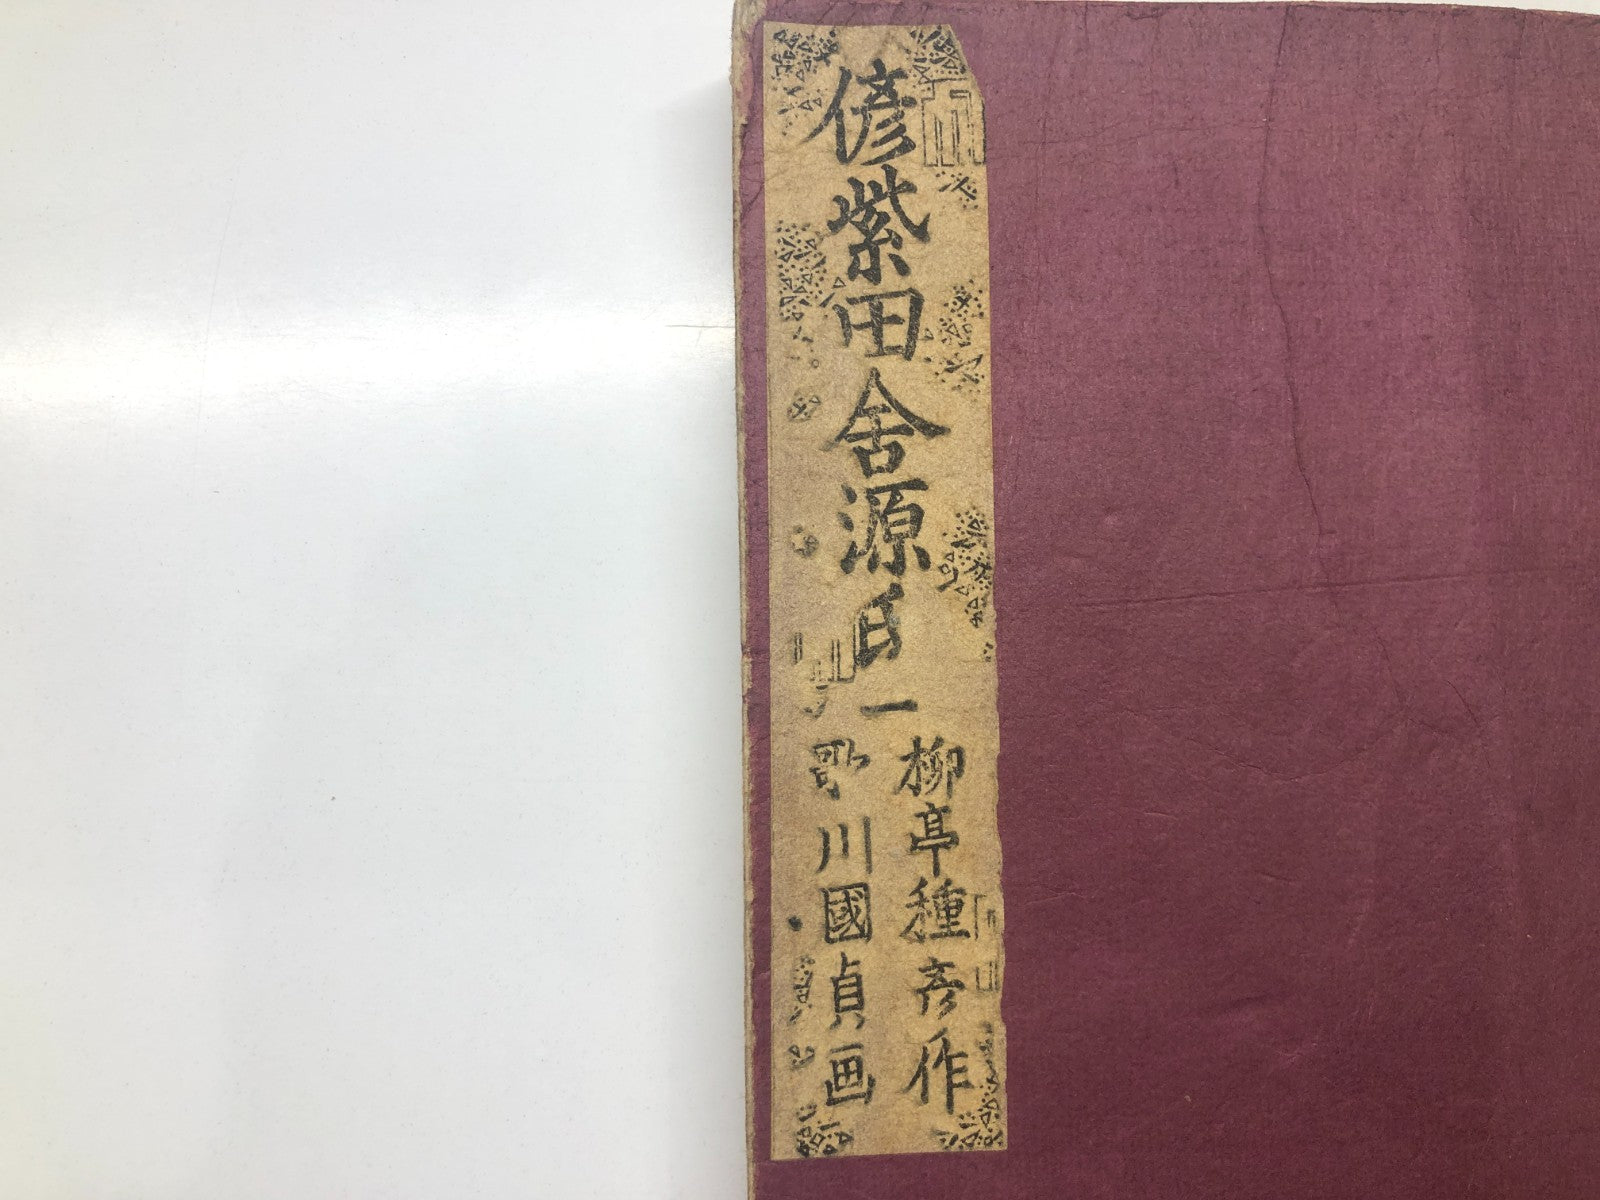 偐紫田舎源氏 一
柳亭種彦作
歌川國貞画